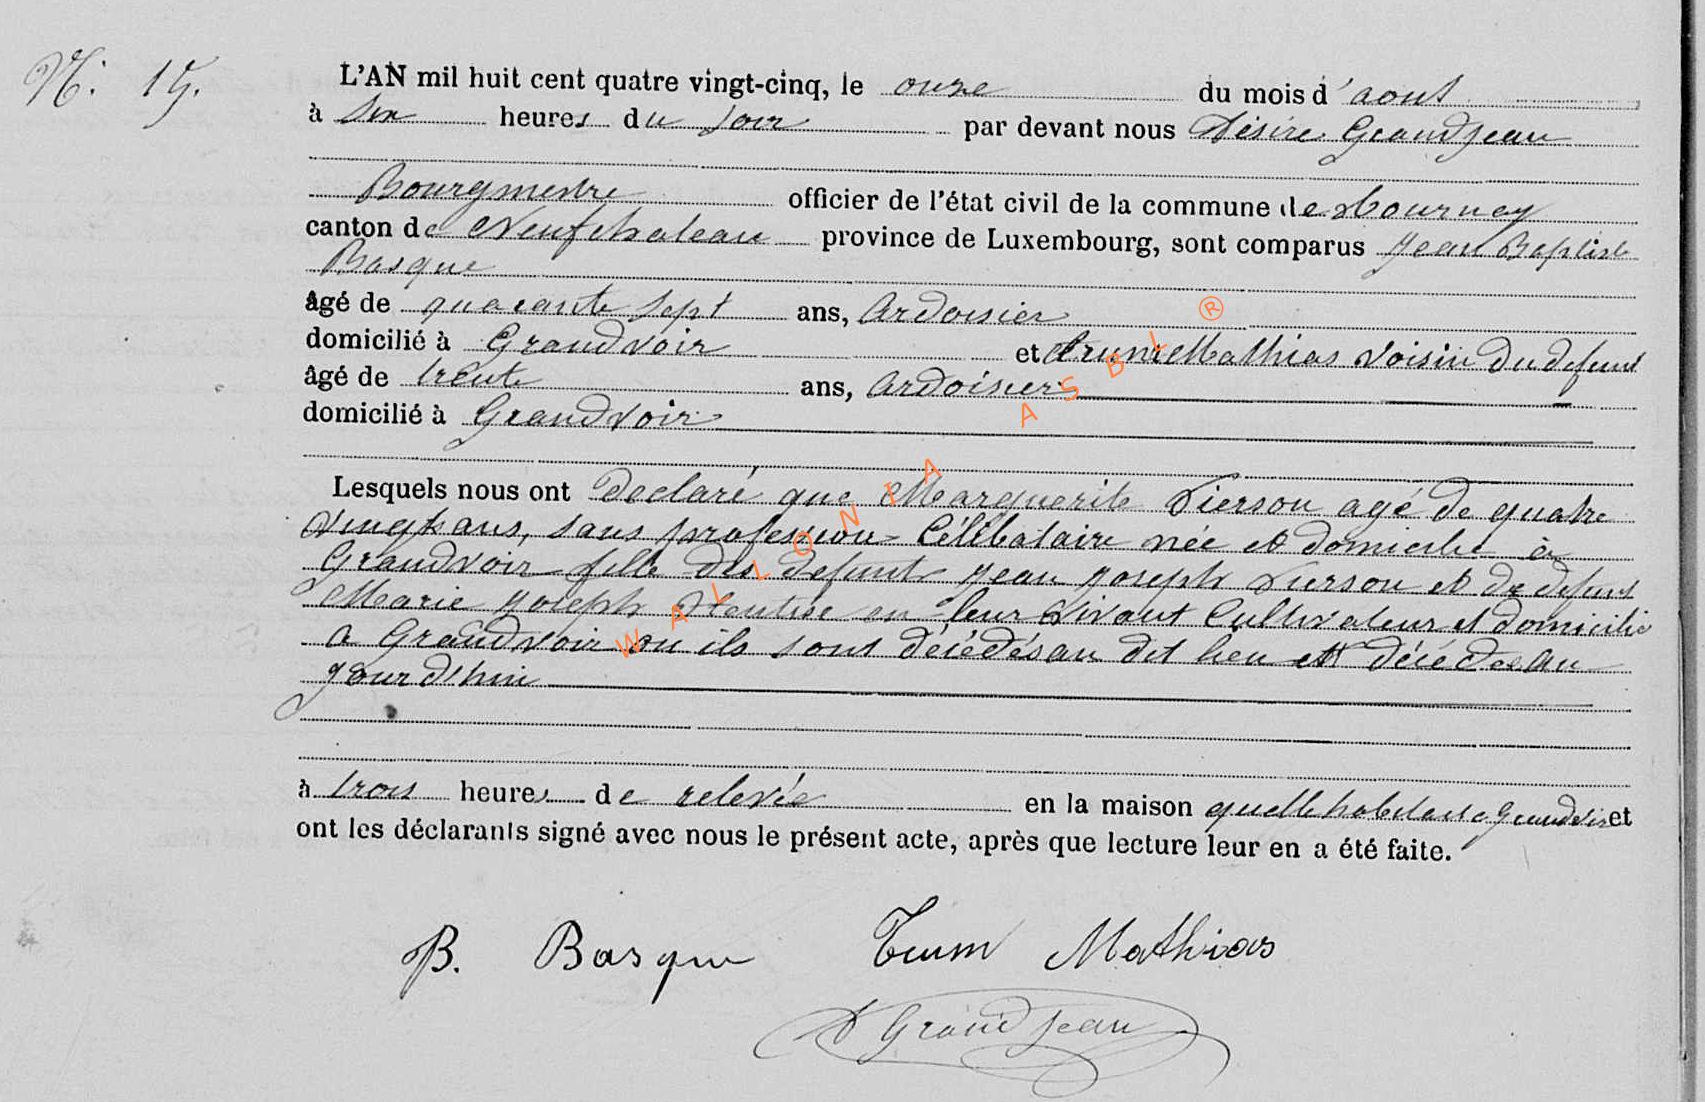 N: 15.
L'AN mil huit cent quatre vingt-cinq, le onze du mois d'aout
à six heures du soir par devant nous Désiré Grandjean
Bourgmestre officier de l'état civil de la commune de Tournay
canton de Neufchateau province de Luxembourg, sont comparus Jean Baptiste
Basque
âgé de quarante sept ans, Ardoisier
domicilié à Grandvoir et Mathias voisin du defunt
âgé de trente ans, Ardoisier
domicilié à Grandvoir
Lesquels nous ont declaré que Marguerite Pierson agé de quatre
vingt ans, sans profession Célibataire née et domicilié à
Grandvoir fille des defunt Jean Joseph Pierson et de defunt
Marie Joseph en leur vivant Cultivateur et domicilié
a Grandvoir ou ils sont décédés au dit lieu et décédée au
jourd'hui
à trois heures de relevée en la maison quelle habitait a Grandvoir et
ont les déclarants signé avec nous le présent acte, après que lecture leur en a été faite.
B. Basque Mathias
D Grandjean
WALLONIA ASBL ®